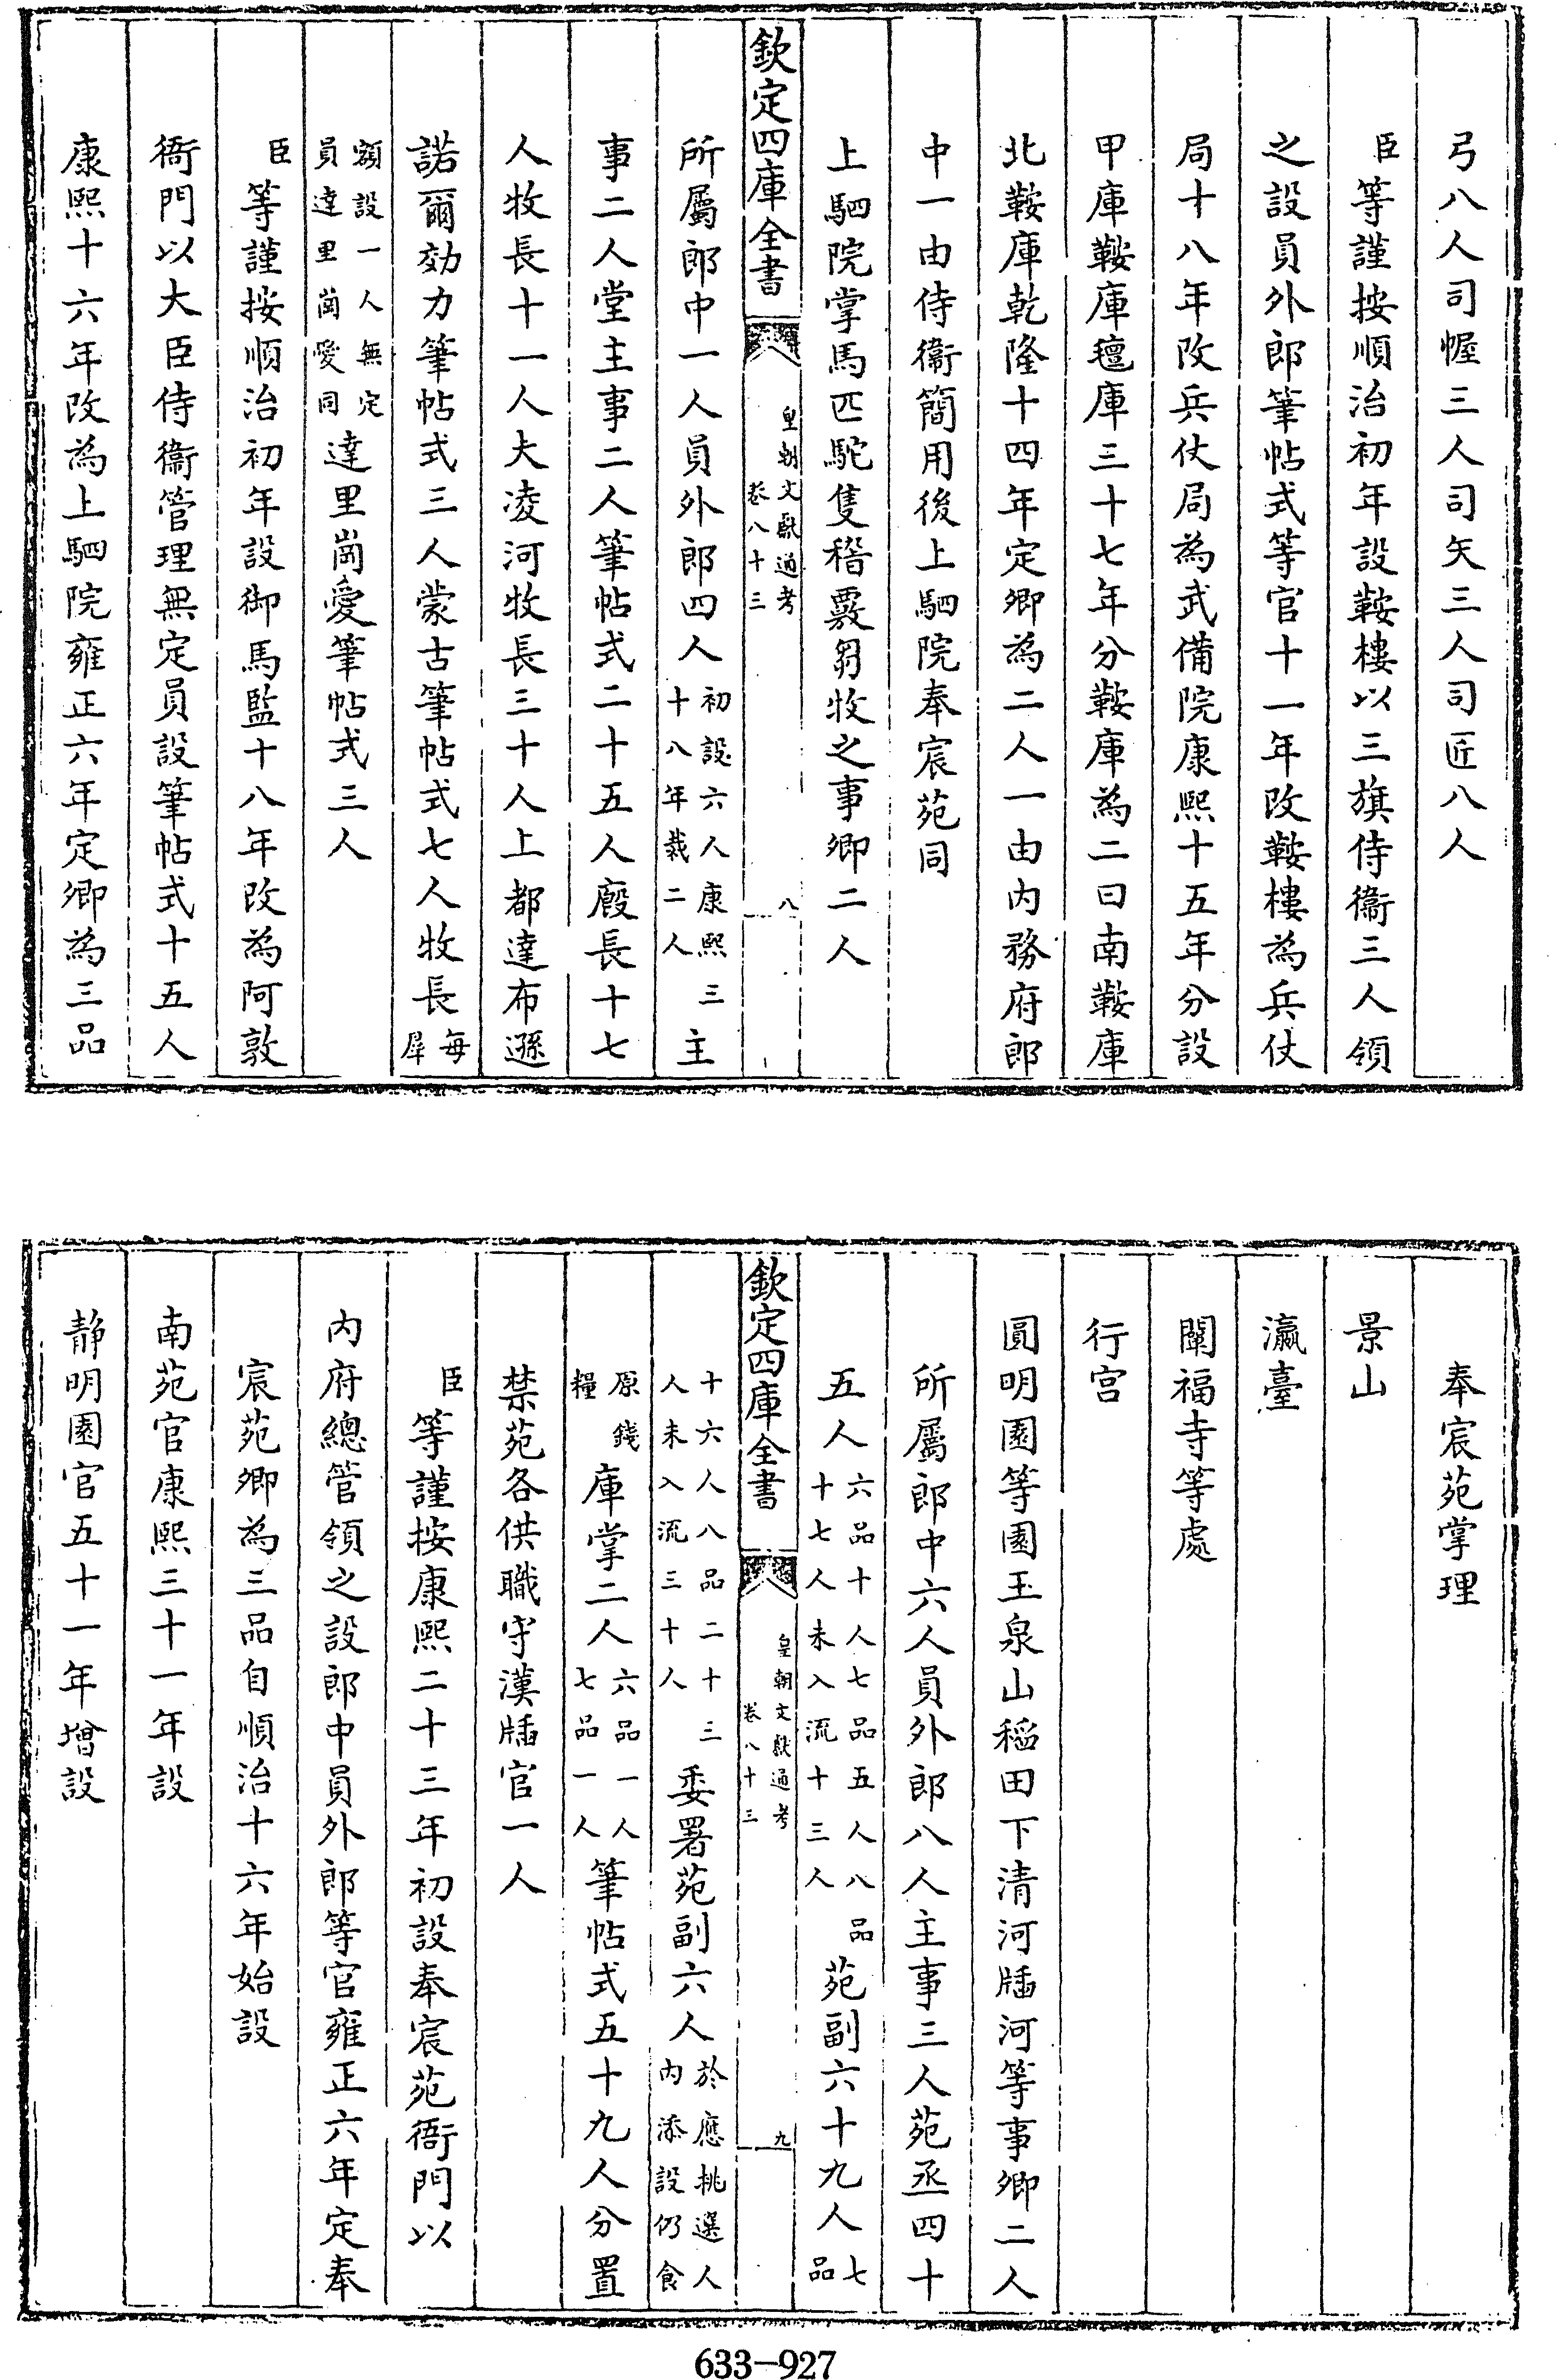 弓八人司幄三人司矢三人司匠八人
臣等謹按順治初年設鞍樓以三旗侍衞三人領
之設員外郎筆帖式等官十一年改鞍樓為兵仗
局十八年改兵仗局為武備院康熙十五年分設
甲庫鞍庫氊庫三十七年分鞍庫為二曰南鞍庫
北鞍庫乾隆十四年定卿為二人一由内務府郎
中一由侍衞簡用後上駟院奉宸苑同
上駟院掌馬匹駝隻稽覈芻牧之事卿二人
欽定四庫全書 皇朝文獻通考 卷八十三 八
所屬郎中一人員外郎四人初設六人康熙三十八年裁二人主
事二人堂主事二人筆帖式二十五人廄長十七
人牧長十一人大凌河牧長三十人上都達布遜
諾爾効力筆帖式三人蒙古筆帖式七人牧長每犀
額設一人無定員達里崗愛同達里崗愛筆帖式三人
臣等謹按順治初年設御馬監十八年改為阿敦
衙門以大臣侍衞管理無定員設筆帖式十五人
康熙十六年改為上駟院雍正六年定卿為三品
奉宸苑掌理
景山
瀛臺
闡福寺等處
行宫
圓明園等園玉泉山稻田下清河牐河等事卿二人
所屬郎中六人員外郎八人主事三人苑丞四十
五人六品十人七品五人八品十七人未入流十三人苑副六十九人七品
欽定四庫全書 皇朝文獻通考 卷八十三 九
十六人八品二十三人未入流三十人委署苑副六人於應挑選人内添設仍食
原錢糧庫掌二人六品一人七品一人筆帖式五十九人分置
禁苑各供職守漢牐官一人
臣等謹按康熙二十三年初設奉宸苑衙門以
内府總管領之設郎中員外郎等官雍正六年定奉
宸苑卿為三品自順治十六年始設
南苑官康熙三十一年設
静明園官五十一年增設
633-927